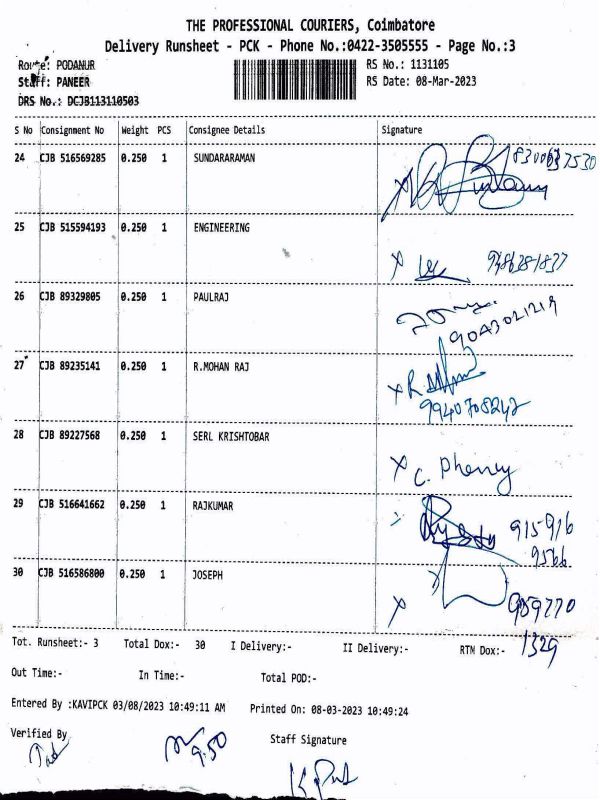 THE PROFESSIONAL COURIERS, Coimbatore
Delivery Runsheet - PCK - Phone No.:0422-3505555 - Page No.:3
Route: PODANUR
RS No.: 1131105
Staff: PANEER
RS Date: 08-Mar-2023
DRS No.: DCJB113110503
S No Consignment No Weight PCS Consignee Details Signature
24 CJB 516569285 0.250 1 SUNDARARAMAN
25 CJB 515594193 0.250 1 ENGINEERING
26 CJB 89329805 0.250 1 PAULRAJ
9043021219
27 CJB 89235141 0.250 1 R.MOHAN RAJ
9940708242
28 CJB 89227568 0.250 1 SERL KRISHTOBAR
29 CJB 516641662 0.250 1 RAJKUMAR
915916
9566
30 CJB 516586800 0.250 1 JOSEPH
959770
1329
Tot. Runsheet:- 3 Total Dox:- 30 I Delivery:- II Delivery:- RTN Dox:-
Out Time:- In Time:- Total POD:-
Entered By :KAVIPCK 03/08/2023 10:49:11 AM Printed On: 08-03-2023 10:49:24
Verified By
9.50
Staff Signature